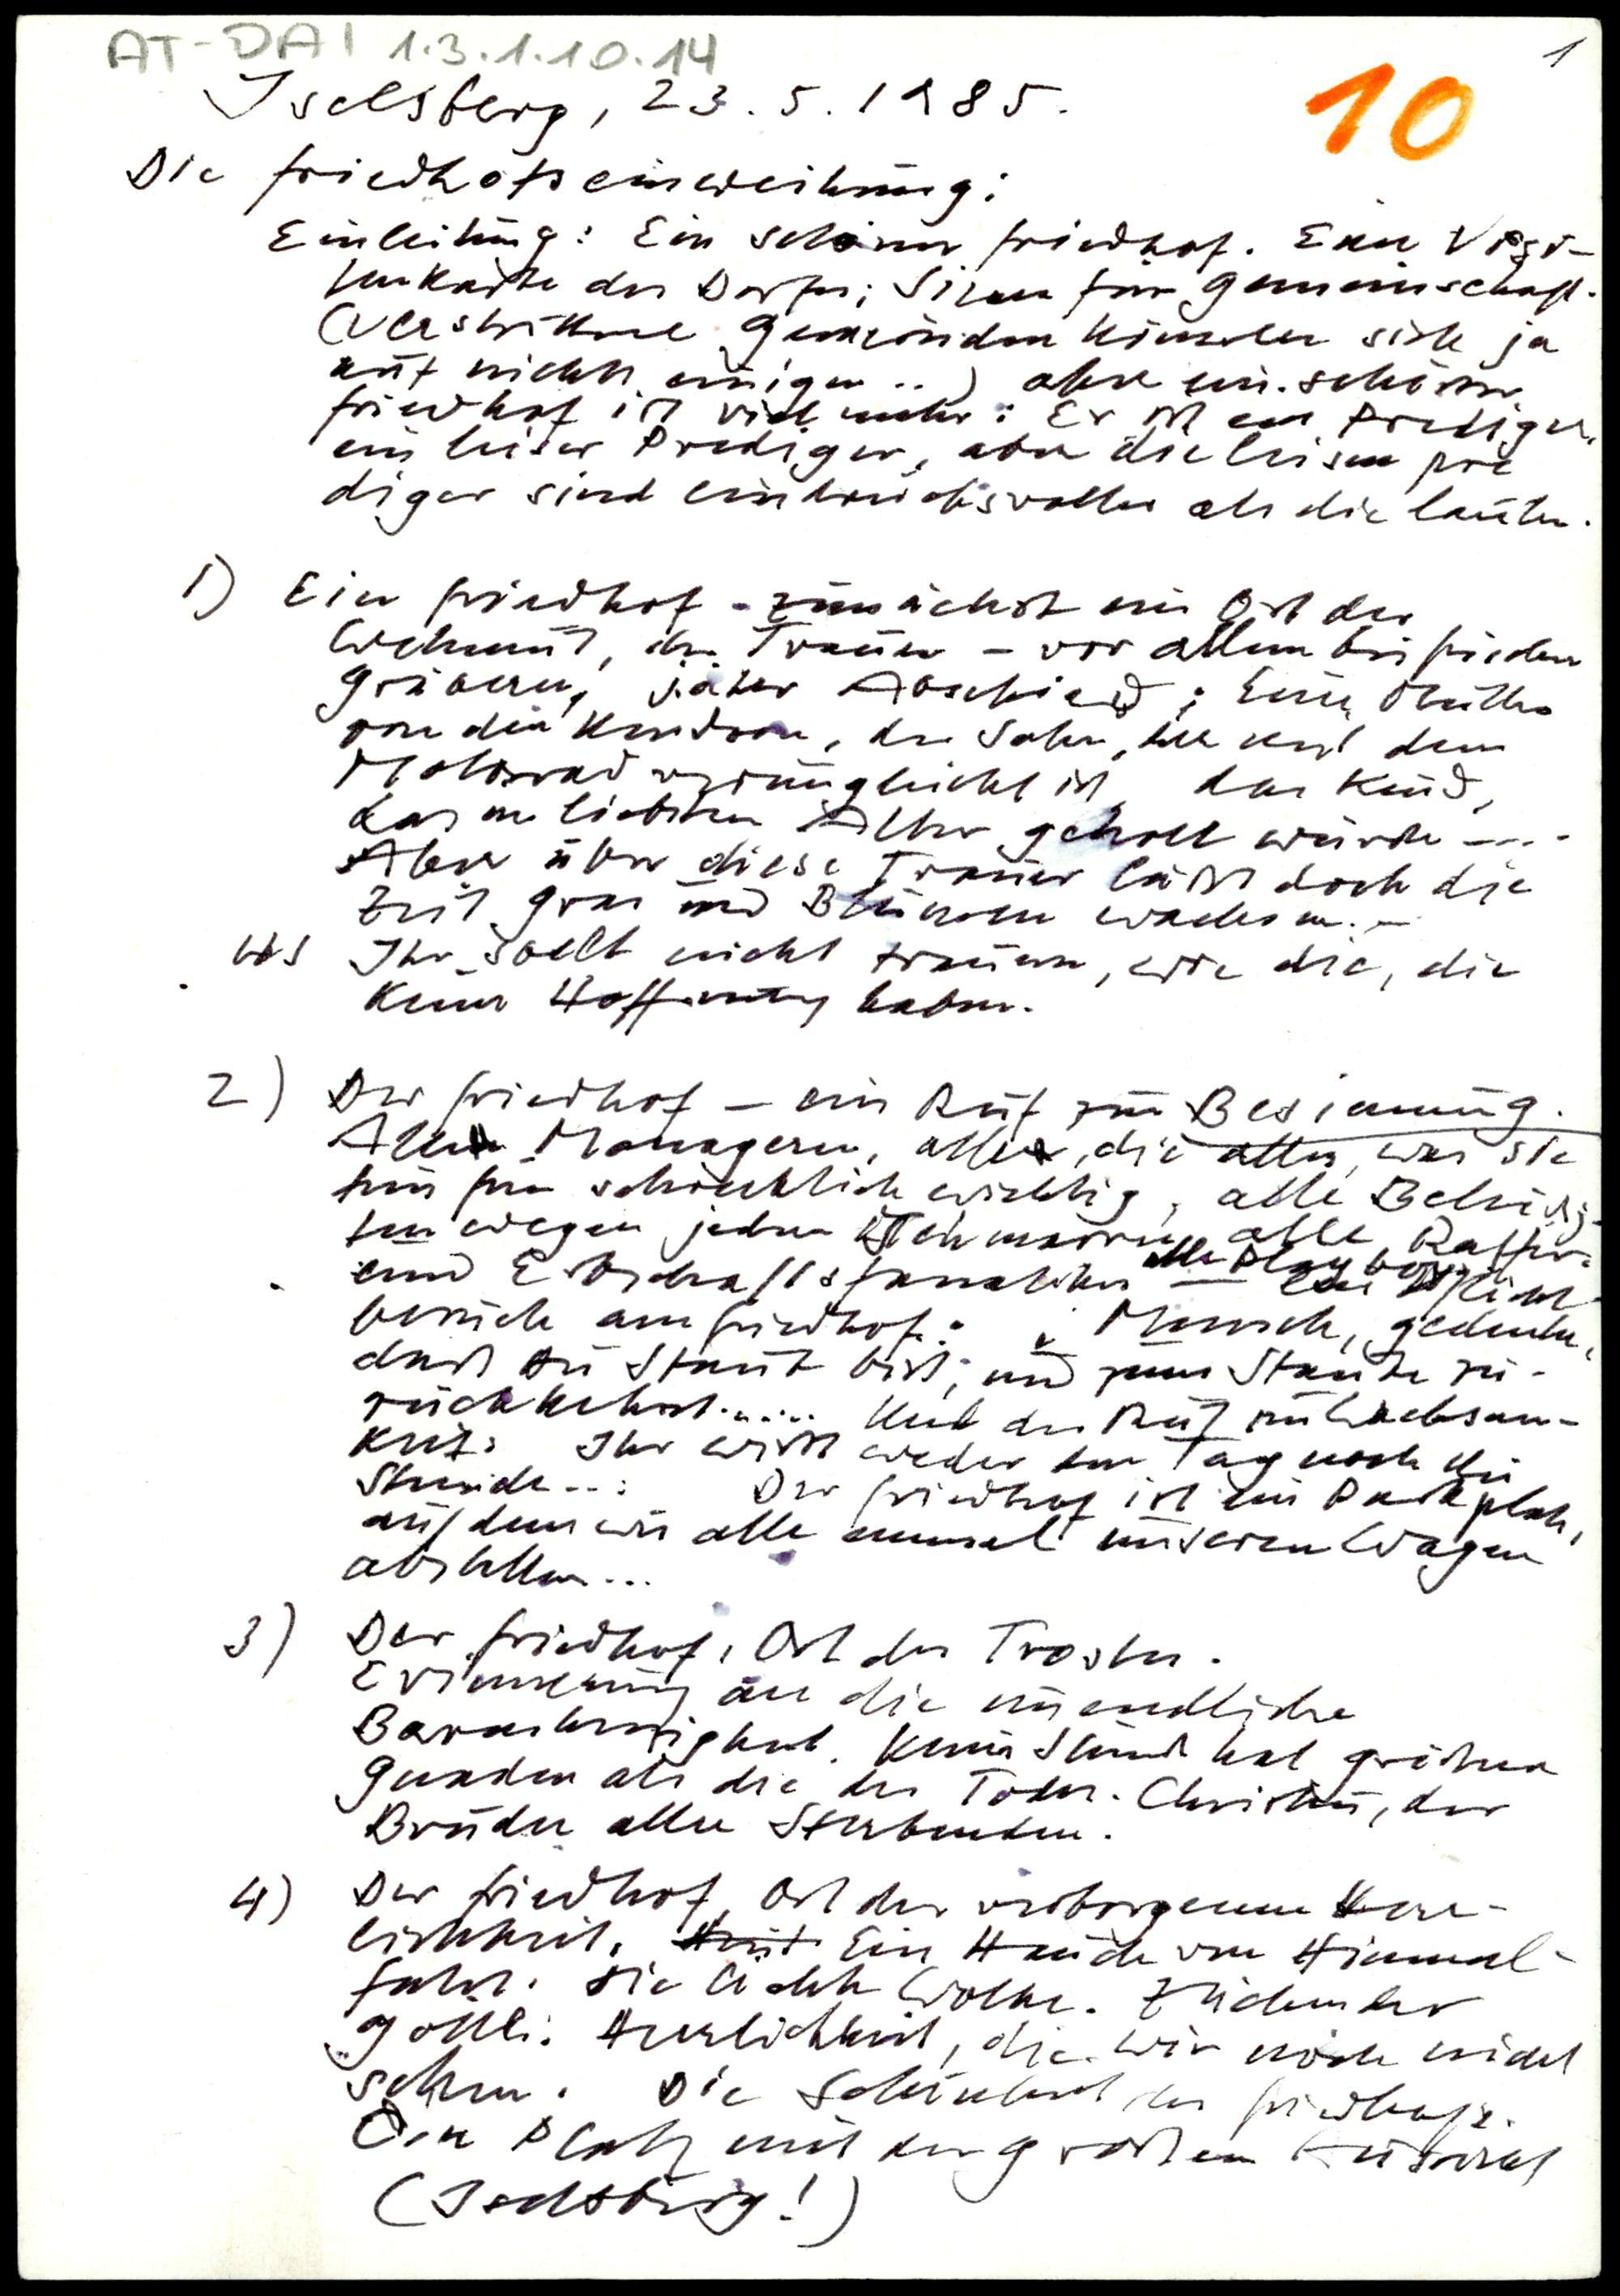 AT-DAI 1.3.1.10.14
1
10
Iselsberg, 23.5.1985.
Die Friedhofseinweihung:
Einleitung: Ein schöner Friedhof. Eine Visi-
tenkarte des Dorfes; Sinn für Gemeinschaft.
(Verstrittene Gemeinden können sich ja
auf nichts einigen..) aber ein schöner
Friedhof ist viel mehr: Er ist ein Prediger,
ein leiser Prediger, aber die leisen Pre
diger sind eindrucksvoller als die lauten.
1) Ein Friedhof - zunächst ein Ort der
Wehmut, der Trauer - vor allem bei frischen
Gräbern, jäher Abschied; Eine Mutter
von den Kindern, der Sohn, der mit dem
Motorrad verunglückt ist, das Kind,
das im liebsten Alter geholt wurde ....
Aber über diese Trauer läßt doch die
Zeit Gras und Blumen wachsen.-
Ihr sollt nicht trauern, wie die, die
keine Hoffnung haben.
2) Der Friedhof - ein Ruf zur Besinnung.
Allen Managern, alle, die alles, was sie
tun für schrecklich wichtig, alle Beleidig-
ten wegen jedem alle Raffer-
und Erbschaftsfanatiker alle Playboys - ein Pflicht-
besuch am Friedhof: Mensch, gedenke,
daß du Staub bist, und zum Staube zu-
rückkehrst..... Und der Ruf zur Wachsam-
keit: Ihr wißt weder den Tag noch die
Stunde..: Der Friedhof ist ein Parkplatz,
auf dem wir alle einmal unseren Wagen
abstellen...
3) Der Friedhof, Ort des Trostes.
Erinnerung an die unendliche
Barmherzigkeit. Keine Stunde hat größere
Gnaden als die des Todes. Christus, der
Bruder aller Sterbenden.
4) Der Friedhof, Ort der verborgenen Herr-
lichkeit. Ein Hauch von Himmel-
fahrt. Die lichte Wolke. Zeichen der
göttli. Herrlichkeit, die wir noch nicht
sehen. Die Schönheit des Friedhofs.
Den Platz mit der großen Aussicht
(Iselsberg!)